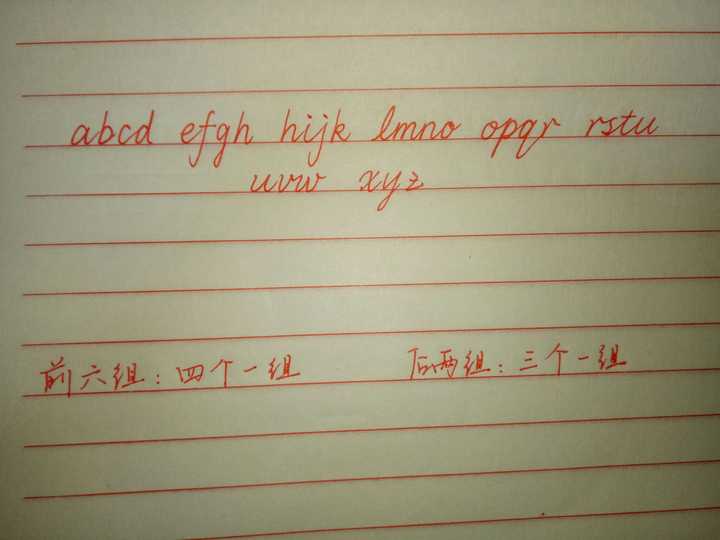 abcd efgh hijk lmno opqr rstu
uvw xyz
前六组：四个一组 后两组：三个一组